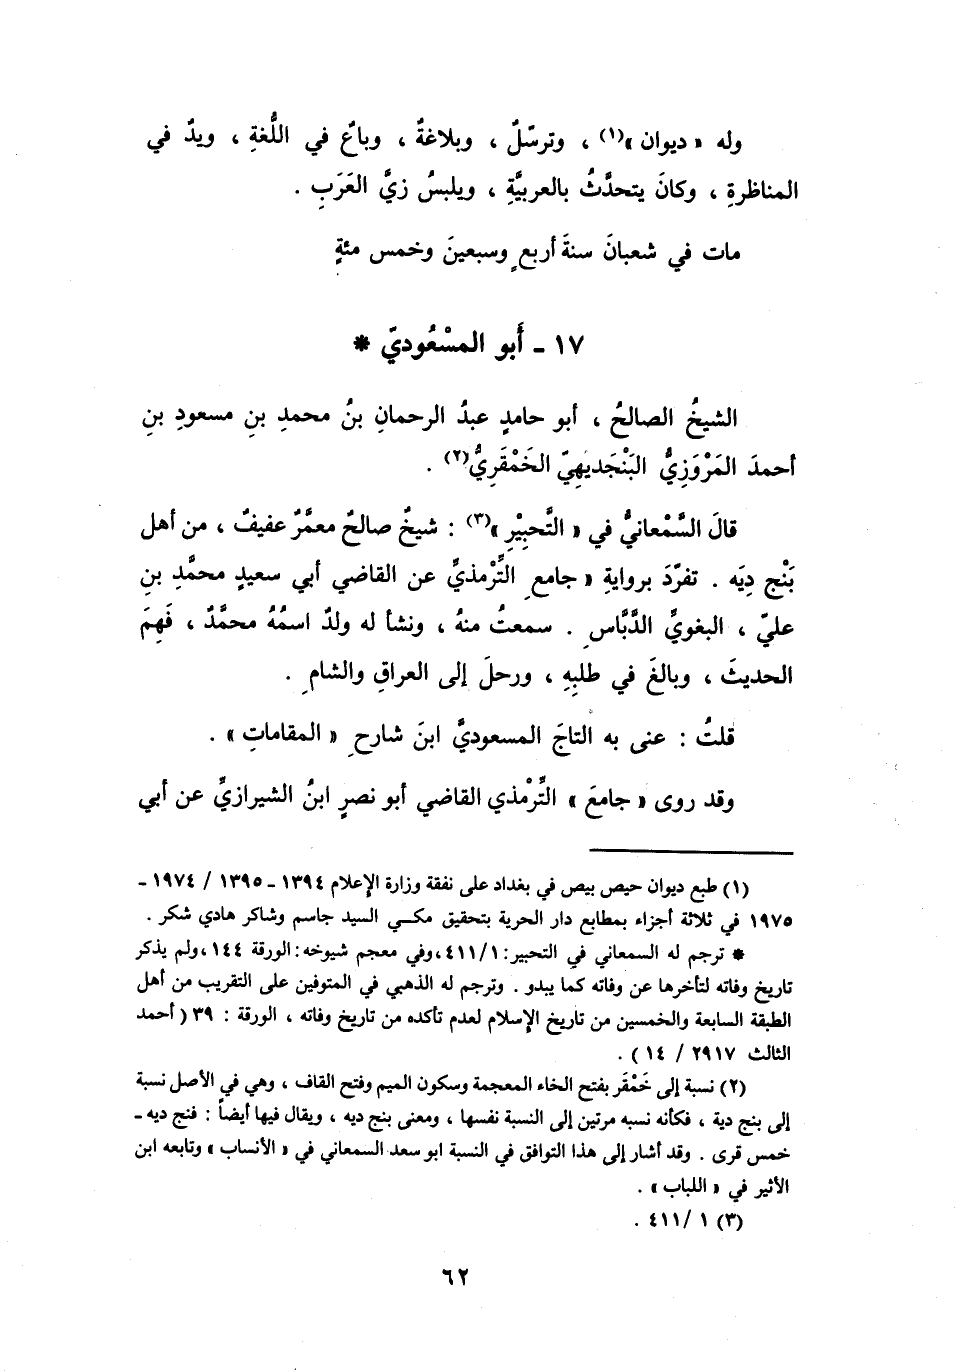 وله « ديوان »(١) ، وترسّلٌ ، وبلاغةٌ ، وباعٌ في اللُّغةِ ، ويدٌ في
المناظرةِ ، وكانَ يتحدَّثُ بالعربيَّةِ ، ويلبسُ زيَّ العَرَبِ .
مات في شعبانَ سنةَ أربعٍ وسبعينَ وخمس مئةٍ
١٧ ـ أَبو المسْعُوديّ *
الشيخُ الصالحُ ، أبو حامدٍ عبدُ الرحمانِ بنُ محمدِ بنِ مسعودِ بنِ
أحمدَ المَرْوَزِيُّ البَنْجَديهِيّ الخَمْقَرِيُّ(٢) .
قالَ السَّمْعانيُّ في « التَّحبِيْرِ »(٣) : شيخٌ صالحٌ معمَّرٌ عفيفٌ ، من أهل
بَنْج دِيَه . تفرّدَ بروايةِ « جامعِ التِّرْمذيِّ عن القاضي أبي سعيدٍ محمَّدِ بنِ
عليّ ، البغويِّ الدَّبَّاسِ . سمعتُ منهُ ، ونشأ له ولدٌ اسمُهُ محمَّدٌ ، فَهِمَ
الحديثَ ، وبالغَ في طلبِهِ ، ورحلَ إلى العراقِ والشامِ .
قلتُ : عنى به التاجَ المسعوديَّ ابنَ شارحِ « المقاماتِ » .
وقد روى « جامعَ » التِّرْمذي القاضي أبو نصرٍ ابنُ الشيرازيِّ عن أبي
(١) طبع ديوان حيص بيص في بغداد على نفقة وزارة الإعلام ١٣٩٤ ـ ١٣٩٥ / ١٩٧٤ ـ
١٩٧٥ في ثلاثة أجزاء بمطابع دار الحرية بتحقيق مكي السيد جاسم وشاكر هادي شكر .
* ترجم له السمعاني في التحبير: ٤١١/١، وفي معجم شيوخه: الورقة ١٤٤، ولم يذكر
تاريخ وفاته لتأخرها عن وفاته كما يبدو . وترجم له الذهبي في المتوفين على التقريب من أهل
الطبقة السابعة والخمسين من تاريخ الإسلام لعدم تأكده من تاريخ وفاته ، الورقة : ٣٩ ( أحمد
الثالث ٢٩١٧ / ١٤ ) .
(٢) نسبة إلى خَمْقَر بفتح الخاء المعجمة وسكون الميم وفتح القاف ، وهي في الأصل نسبة
إلى بنج دية ، فكأنه نسبه مرتين إلى النسبة نفسها ، ومعنى بنج ديه ، ويقال فيها أيضاً : فنج ديه ـ
خمس قرى . وقد أشار إلى هذا التوافق في النسبة ابو سعد السمعاني في « الأنساب » وتابعه ابن
الأثير في « اللباب » .
(٣) ٤١١/ ١ .
٦٢